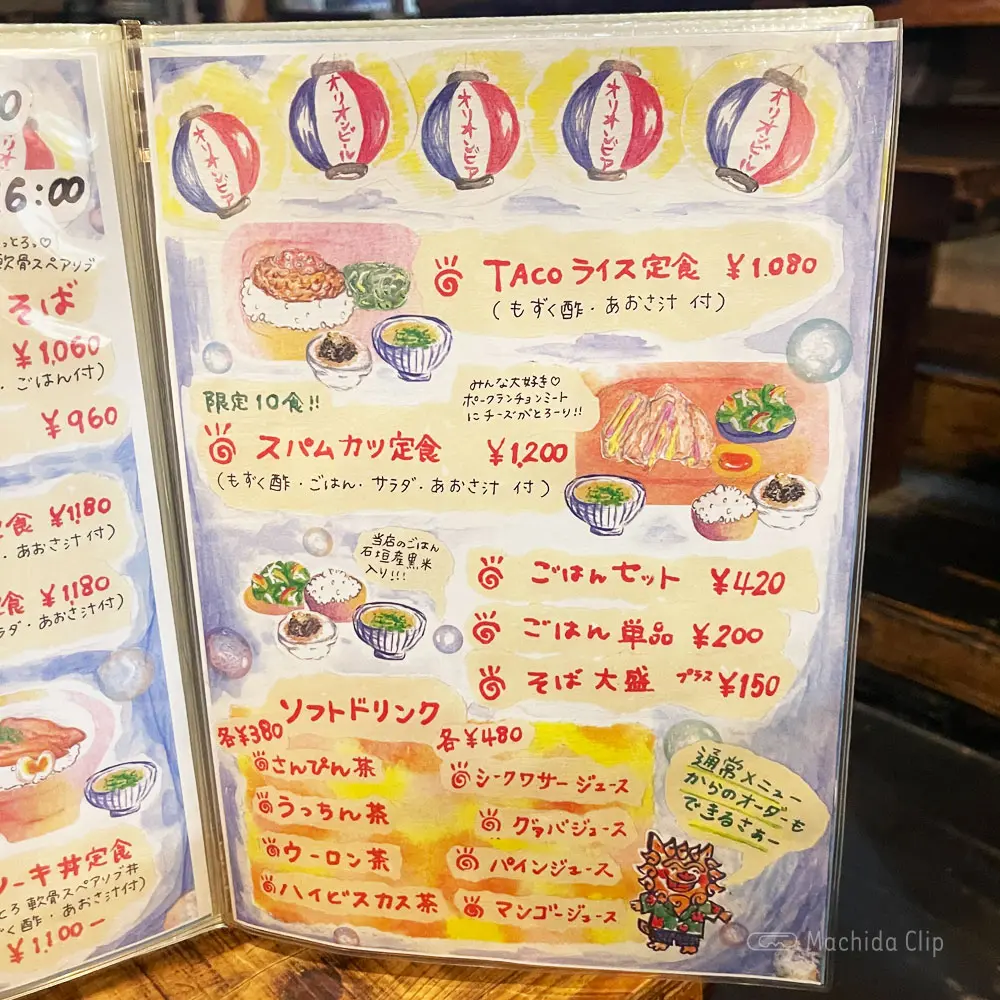 16:00
軟骨スペアリブ
そば
¥1,060
ごはん付)
¥960
定食 ¥1,180
あおさ汁付)
定食 ¥1,180
サラダ・あおさ汁付)
ソーキ丼定食
とろ 軟骨スペアリブ丼
もずく酢・あおさ汁付)
¥1,100-
オリオンビア
オリオンビール
オリオンビア
オリオンビア
オリオンビール
TAcoライス定食 ¥1.080
(もずく酢・あおさ汁 付)
限定10食!!
みんな大好き♡
ポークランチョンミート
にチーズがとろーり!!
スパムカツ定食 ¥1,200
(もずく酢・ごはん・サラダ・あおさ汁 付)
当店のごはん
石垣産黒米
入り!!!
ごはんセット ¥420
ごはん単品 ¥200
そば大盛 プラス¥150
ソフトドリンク
各¥380
さんぴん茶
うっちん茶
ウーロン茶
ハイビスカス茶
各¥480
シークワサージュース
グァバジュース
パインジュース
マンゴージュース
通常メニュー
からのオーダーも
できるさぁー
Machida Clip